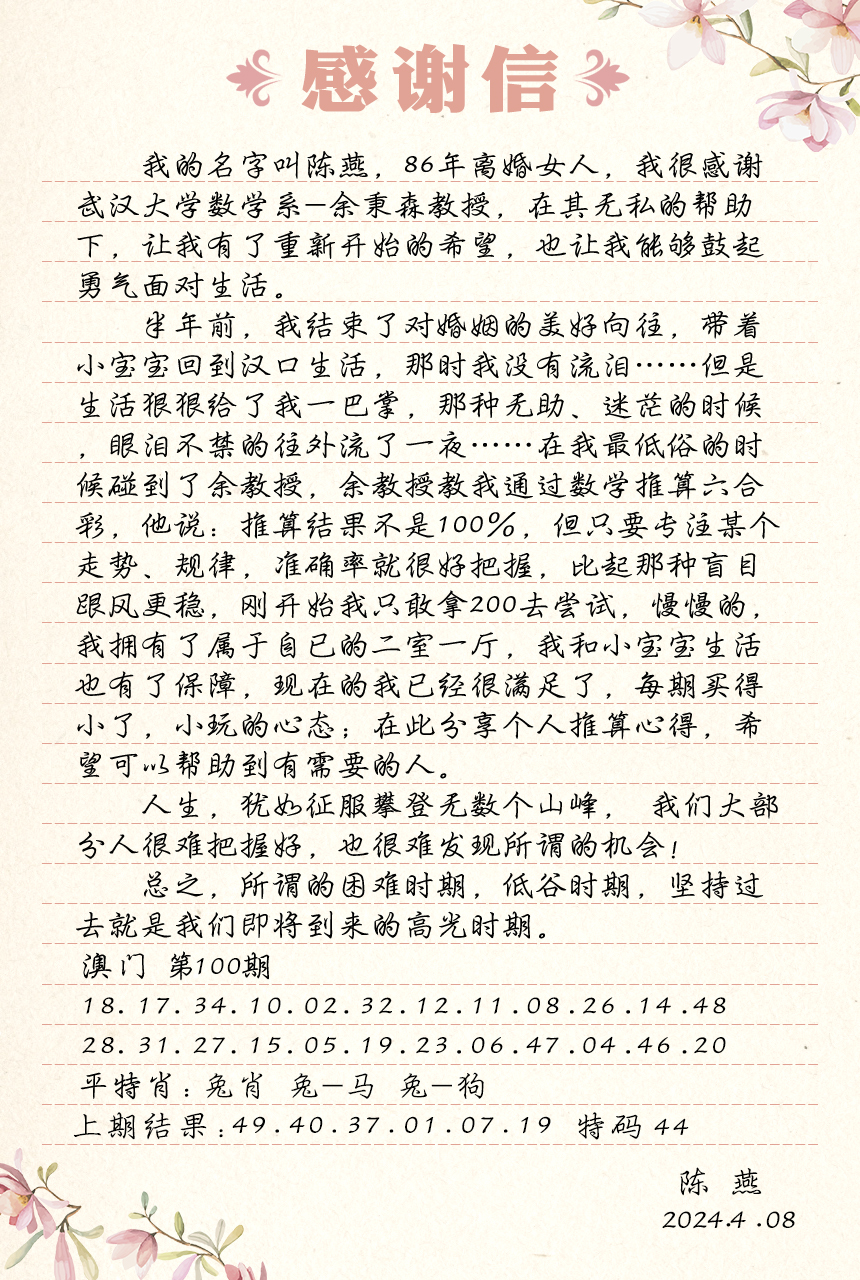 感谢信
我的名字叫陈燕，86年离婚女人，我很感谢
武汉大学数学系—余秉森教授，在其无私的帮助
下，让我有了重新开始的希望，也让我能够鼓起
勇气面对生活。
半年前，我结束了对婚姻的美好向往，带着
小宝宝回到汉口生活，那时我没有流泪……但是
生活狠狠给了我一巴掌，那种无助、迷茫的时候
，眼泪不禁的往外流了一夜……在我最低俗的时
候碰到了余教授，余教授教我通过数学推算六合
彩，他说：推算结果不是100%，但只要专注某个
走势、规律，准确率就很好把握，比起那种盲目
跟风更稳，刚开始我只敢拿200去尝试，慢慢的，
我拥有了属于自己的二室一厅，我和小宝宝生活
也有了保障，现在的我已经很满足了，每期买得
小了，小玩的心态；在此分享个人推算心得，希
望可以帮助到有需要的人。
人生，犹如征服攀登无数个山峰， 我们大部
分人很难把握好，也很难发现所谓的机会！
总之，所谓的困难时期，低谷时期，坚持过
去就是我们即将到来的高光时期。
澳门 第100期
18.17.34.10.02.32.12.11.08.26.14.48
28.31.27.15.05.19.23.06.47.04.46.20
平特肖：兔肖 兔—马 兔—狗
上期结果：49.40.37.01.07.19 特码 44
陈 燕
2024.4.08